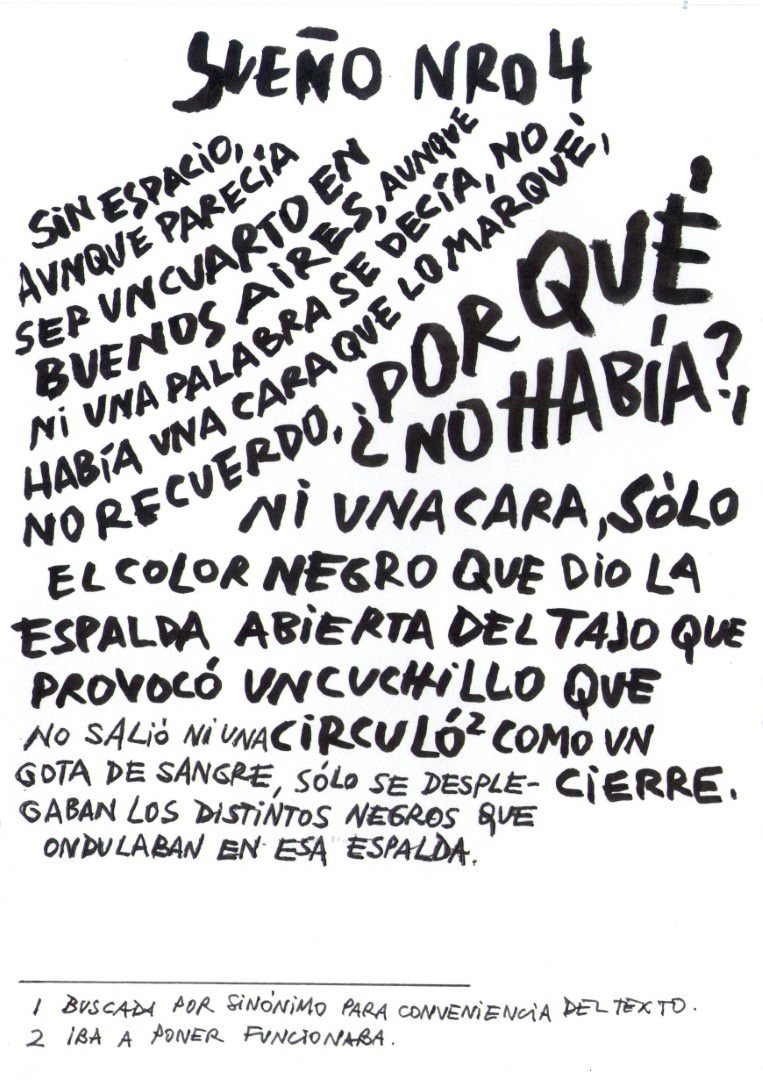 SUEÑO NRO 4
SIN ESPACIO,
AUNQUE PARECÍA
SER UN CUARTO EN
BUENOS AIRES, AUNQUE
NI UNA PALABRA SE DECÍA, NO
HABÍA UNA CARA QUE LO MARQUE¹,
NO RECUERDO.
¿POR QUÉ
NO HABÍA?,
NI UNA CARA, SÓLO
EL COLOR NEGRO QUE DIO LA
ESPALDA ABIERTA DEL TAJO QUE
PROVOCÓ UN CUCHILLO QUE
CIRCULÓ² COMO UN
CIERRE.
NO SALIÓ NI UNA
GOTA DE SANGRE, SÓLO SE DESPLE-
GABAN LOS DISTINTOS NEGROS QUE
ONDULABAN EN ESA ESPALDA.
1 BUSCADA POR SINÓNIMO PARA CONVENIENCIA DEL TEXTO.
2 IBA A PONER FUNCIONABA.